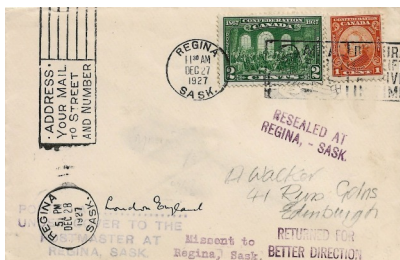 ADDRESS
YOUR MAIL
TO STREET
AND NUMBER
REGINA
11 30 AM
DEC 27
1927
SASK.
1867 CONFEDERATION 1927
CANADA
2 CENTS 2
CONFEDERATION
CANADA
1 CENT 1
RESEALED AT
REGINA, - SASK.
H Walker
41
Edinburgh
REGINA
5 PM
DEC 28
1927
SASK.
London England
TO THE
POSTMASTER AT
REGINA, SASK.
Missent to
Regina, Sask.
RETURNED FOR
BETTER DIRECTION